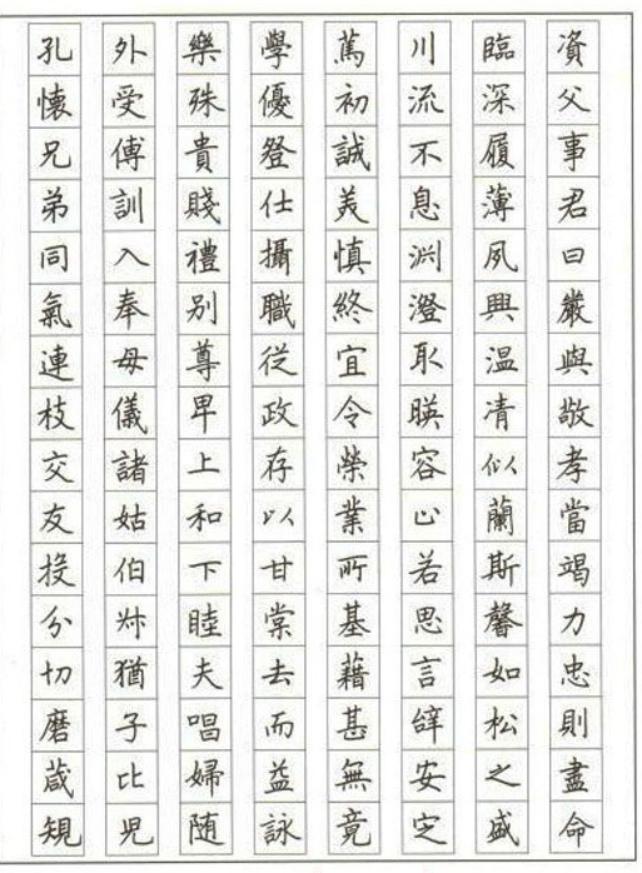 資父事君曰嚴與敬孝當竭力忠則盡命
臨深履薄夙興温凊似蘭斯馨如松之盛
川流不息渊澄取暎容止若思言辭安定
篤初誠美慎終宜令榮業所基藉甚無竟
學優登仕攝職従政存以甘棠去而益詠
樂殊貴賤禮别尊卑上和下睦夫唱婦随
外受傅訓入奉母儀諸姑伯叔猶子比兒
孔懐兄弟同氣連枝交友投分切磨箴規